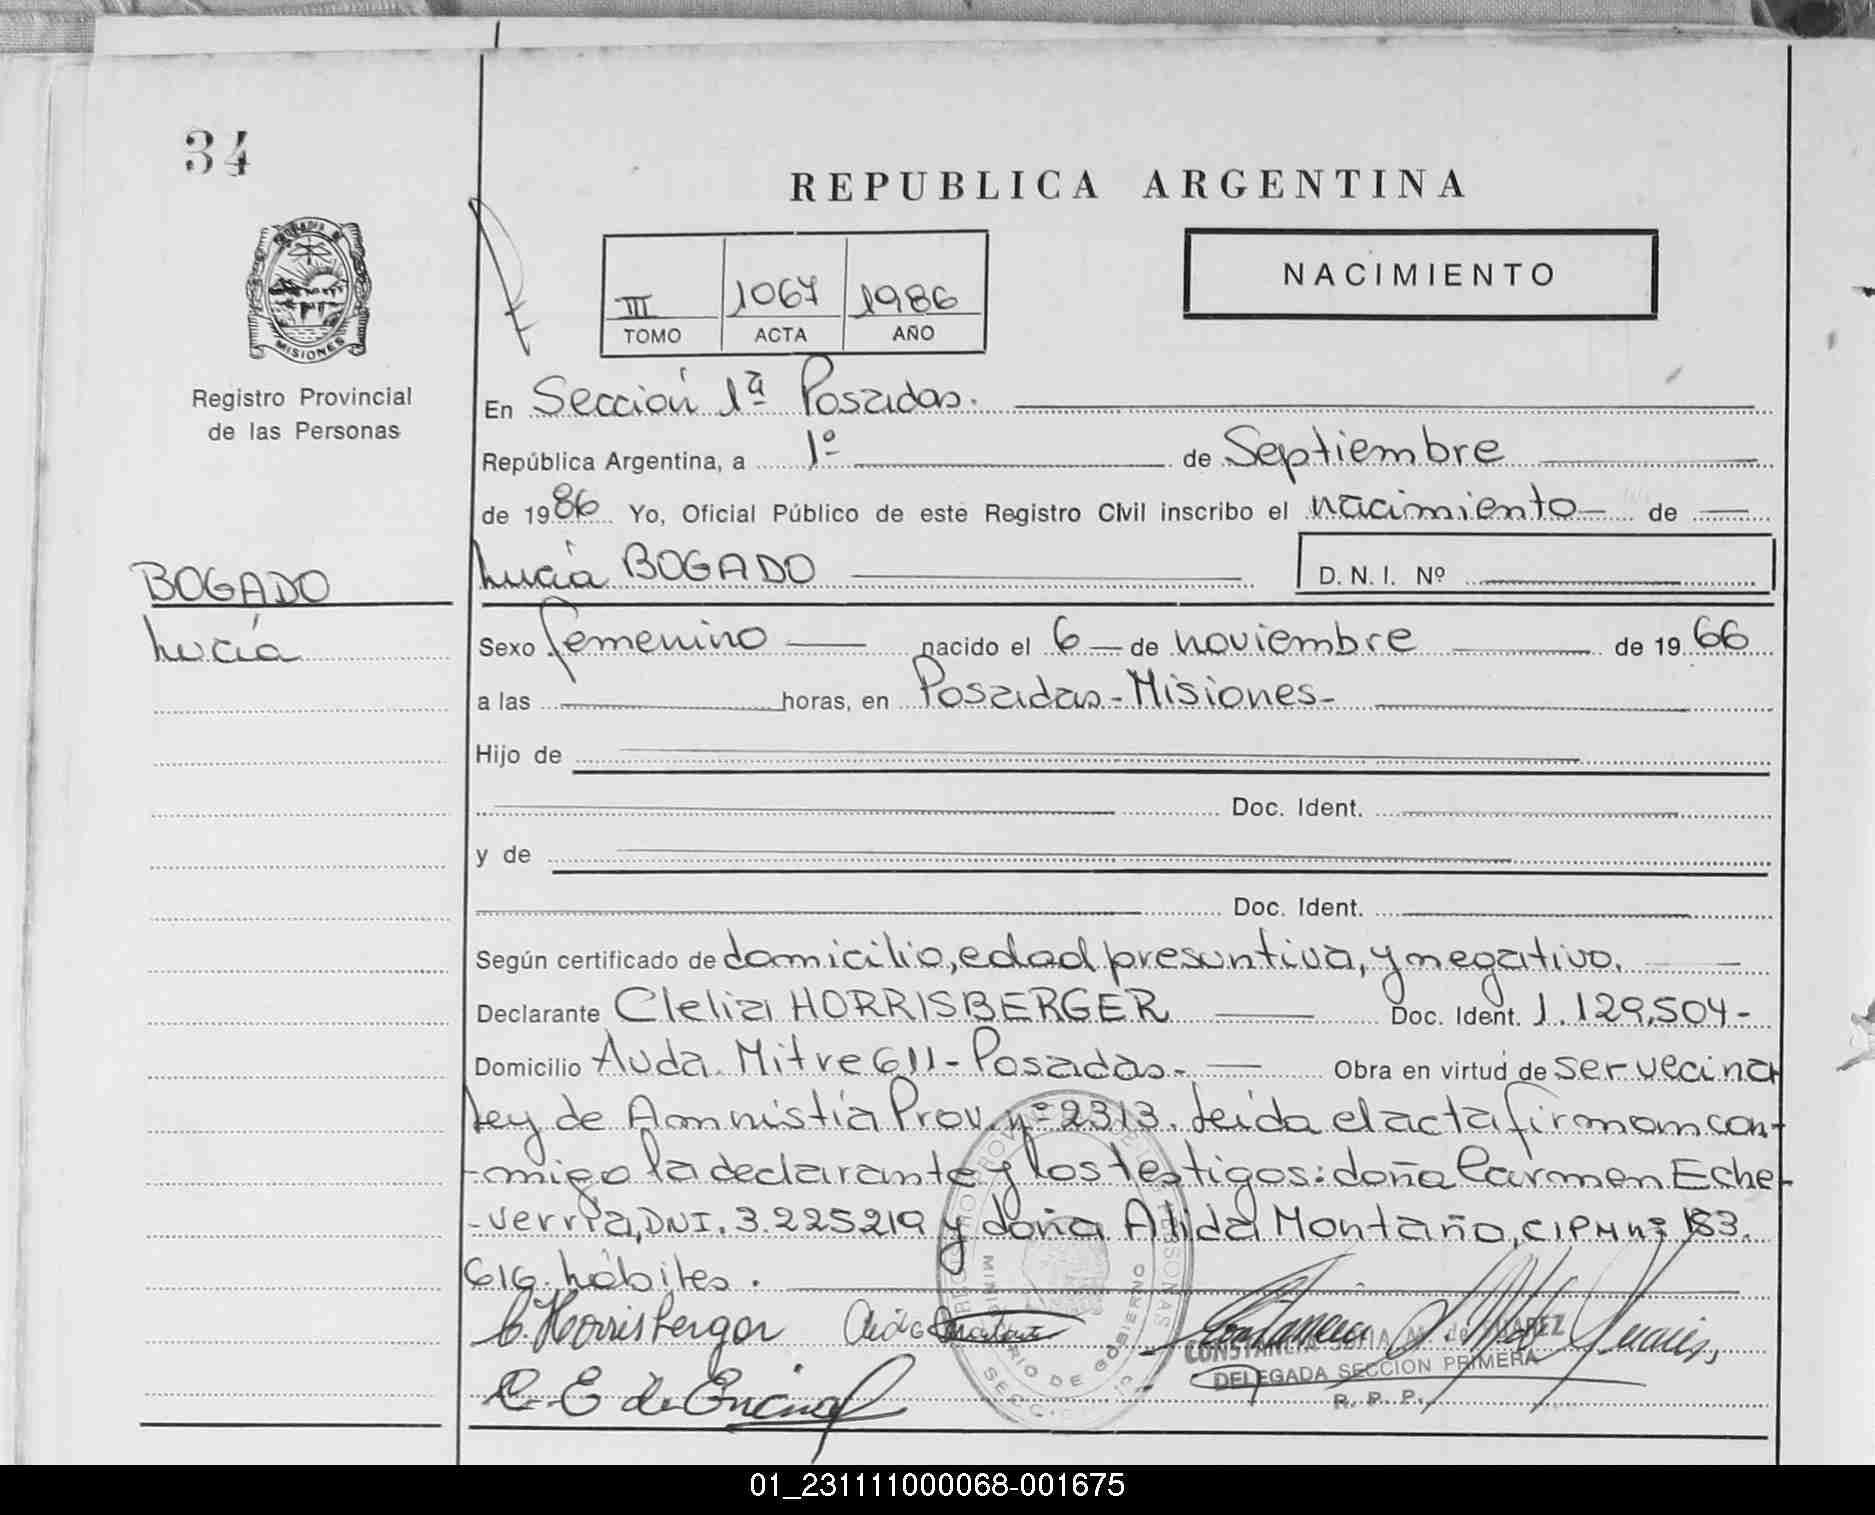 34
REPUBLICA ARGENTINA
NACIMIENTO
III 1067 1986
TOMO ACTA AÑO
MISIONES
Registro Provincial
de las Personas
En Sección 1ª Posadas.
República Argentina, a 1º de Septiembre
de 1986 Yo, Oficial Público de este Registro Civil inscribo el nacimiento de
BOGADO
Lucía
Lucía BOGADO D.N.I. Nº
Sexo femenino nacido el 6 de noviembre de 1966
a las horas, en Posadas-Misiones-
Hijo de
Doc. Ident.
y de
Doc. Ident.
Según certificado de domicilio, edad presuntiva, y negativo.
Declarante Clelia HORRISBERGER Doc. Ident. 1.129.504-
Domicilio Avda. Mitre 611-Posadas- Obra en virtud de ser vecina
Ley de Amnistía Prov. nº 2313. Leída el acta firman con-
-migo la declarante y los testigos: doña Carmen Eche-
-verría, DNI. 3.225219 y doña Alida Montaño, CIPM nº 183.
616. hábiles.
C. Horrisberger
C. E. de Encina
CONSTANCIA SOFIA M. de
DELEGADA SECCION PRIMERA
R. P. P.
MINISTERIO DE GOBIERNO
01_231111000068-001675